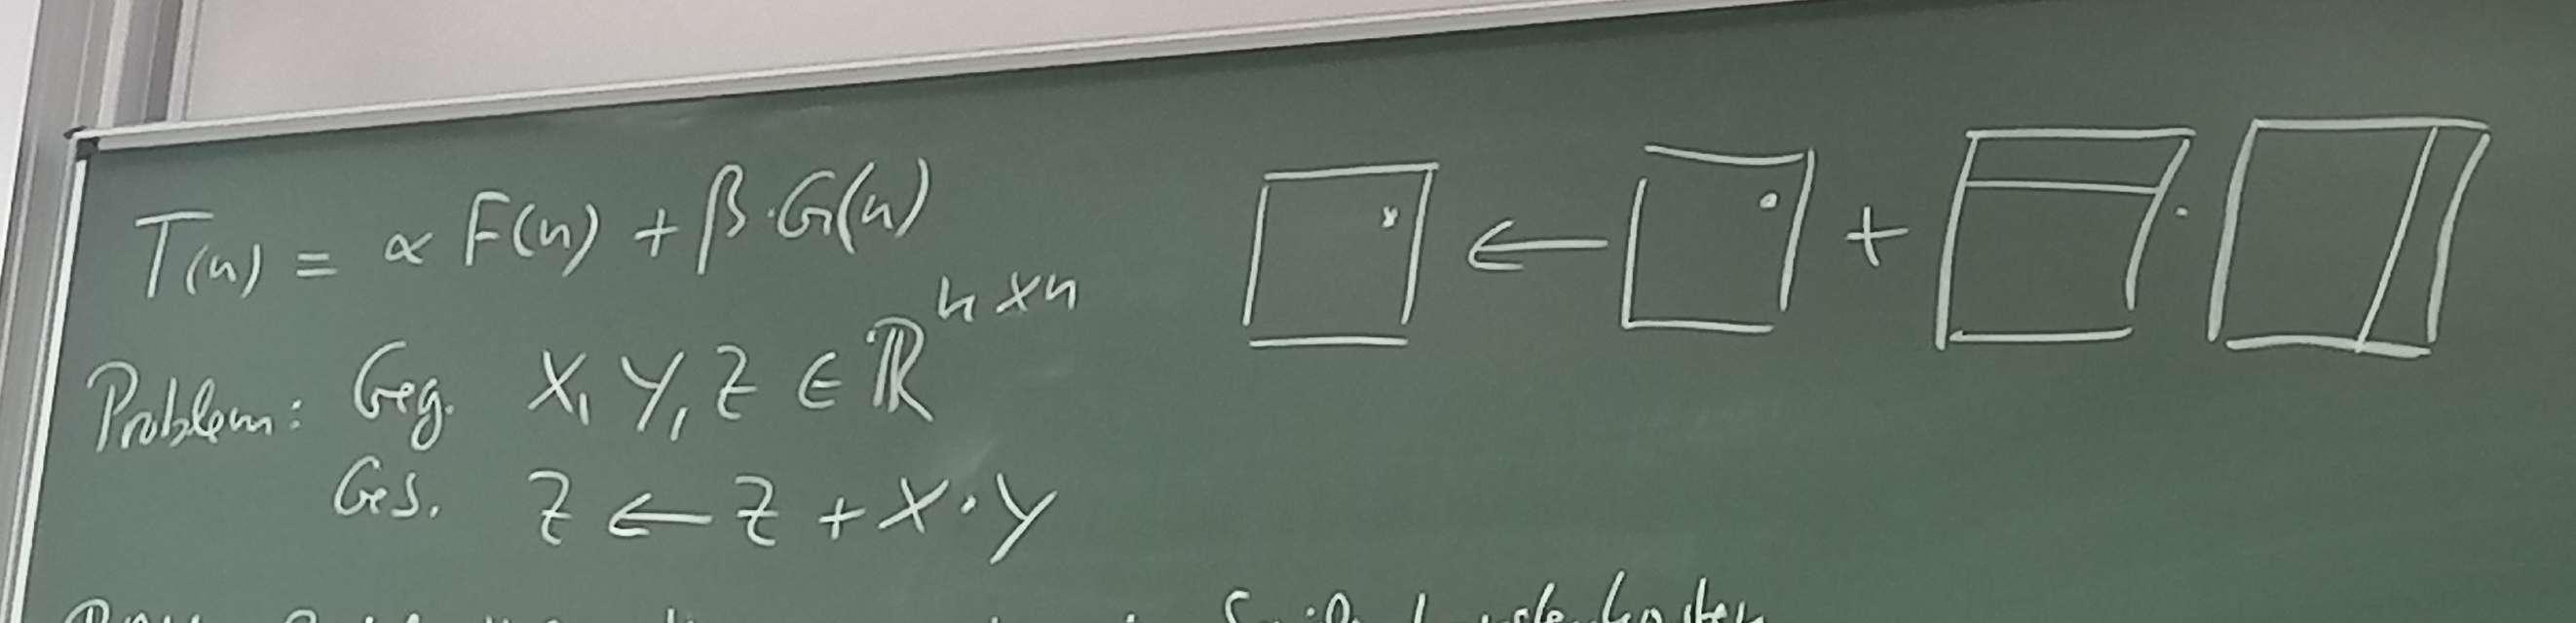 T(n) = α F(n) + β·G(n)
Problem: Geg. X, Y, Z ∈ ℝ^{n×n}
Ges. Z ← Z + X·Y
← + ·